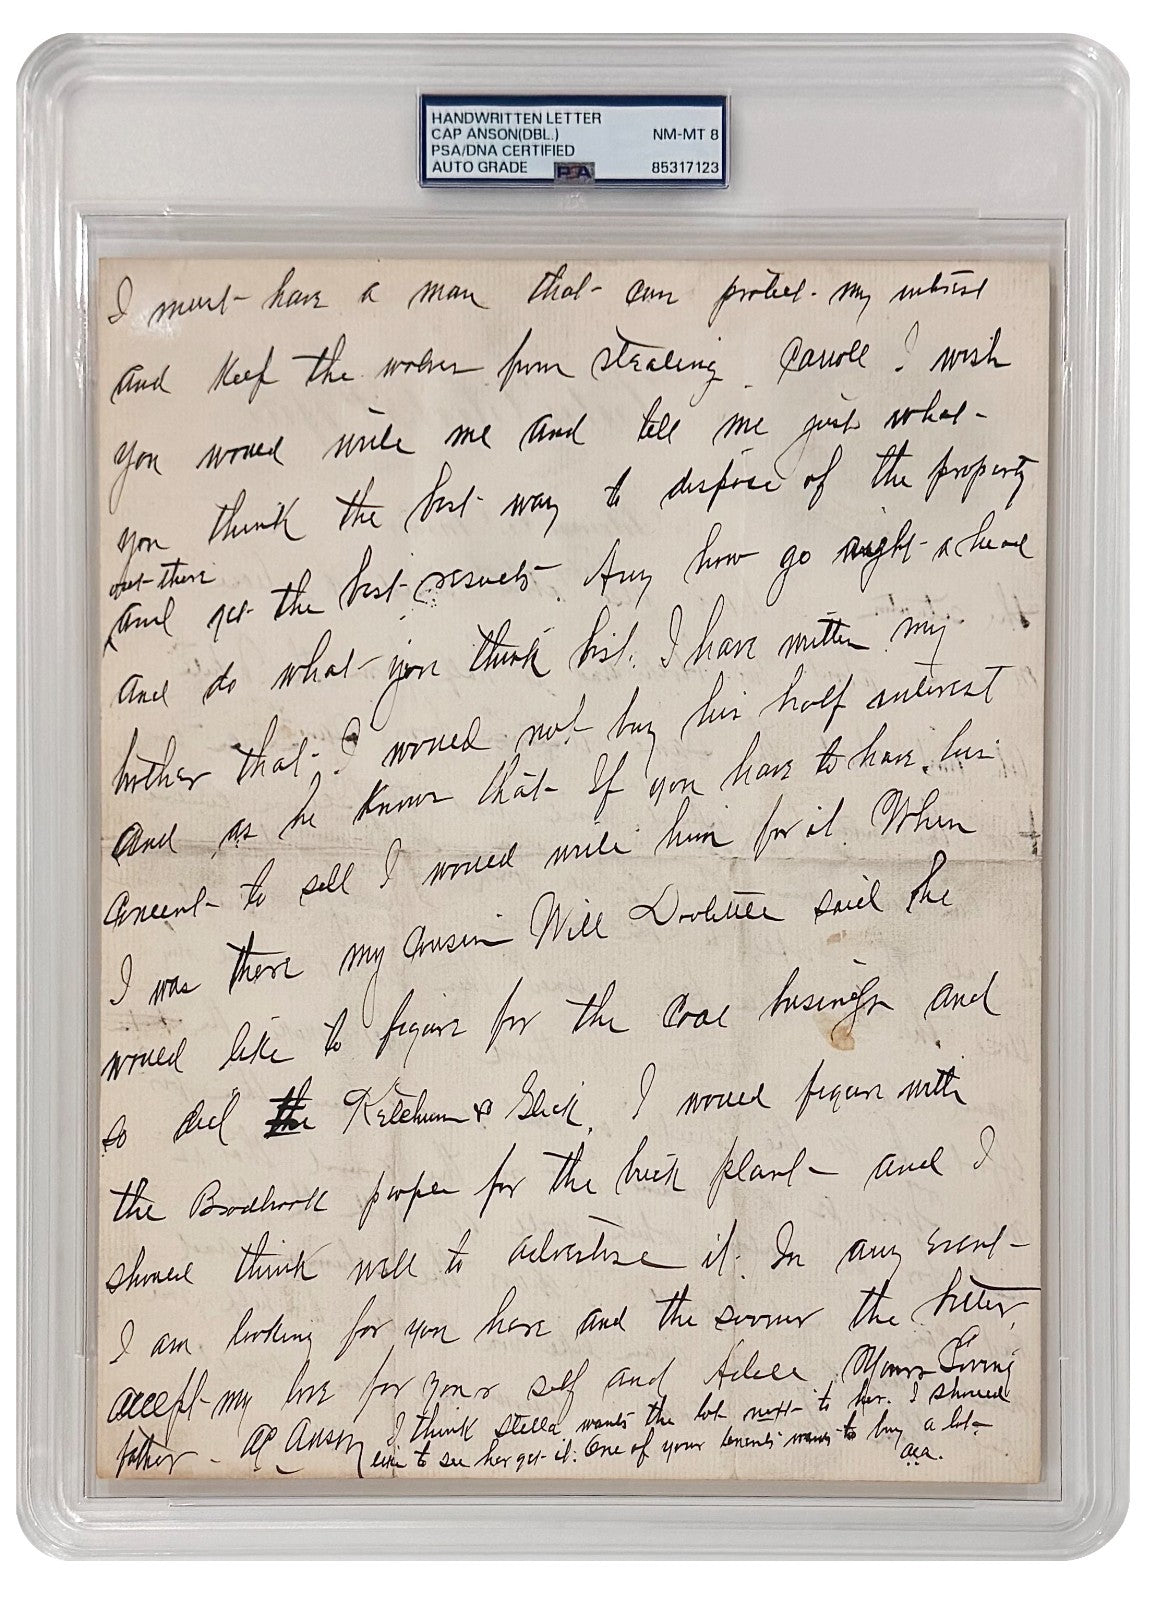 HANDWRITTEN LETTER
CAP ANSON(DBL.)
PSA/DNA CERTIFIED
AUTO GRADE
NM-MT 8
85317123
PSA
I must have a man that can protect my interest
and keep the wolves from stealing. Carroll I wish
you would write me and tell me just what
you think the best way to dispose of the property
out there
and get the best results. Any how go right a head
and do what you think best. I have written my
brother that I would not buy his half interest
and as he knows that If you have to have his
concent to sell I would write him for it. When
I was there my cousin Will Doolittle said he
would like to figure for the coal business and
so did the Ketchum & Glick. I would figure with
the Bradbrook people for the brick plant and I
should think well to advertise it. In any event
I am looking for you here and the sooner the better,
accept my love for your self and Adele. Yours Loving
father. AC Anson
I think Stella wants the lot next to her. I should
like to see her get it. One of your tenents wants to buy a lot
aca.